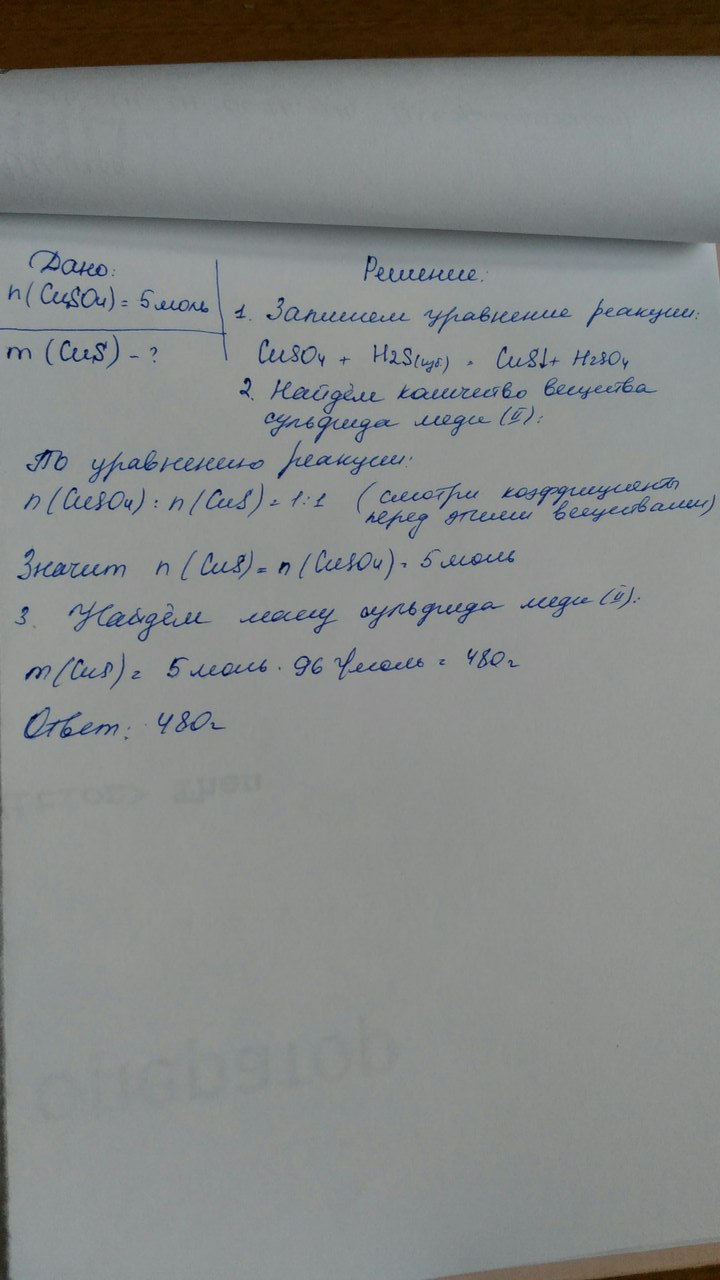 Дано:
n(CuSO4) = 5 моль
m (CuS) - ?
Решение:
1. Запишем уравнение реакции:
CuSO4 + H2S(изб) = CuS↓ + H2SO4
2. Найдём количество вещества
сульфида меди (II):
По уравнению реакции:
n(CuSO4) : n(CuS) = 1:1 (смотри коэффициенты
перед этими веществами)
Значит n(CuS) = n(CuSO4) = 5 моль
3. Найдём массу сульфида меди (II):
m(CuS) = 5 моль · 96 г/моль = 480г
Ответ: 480г
Then
оператор